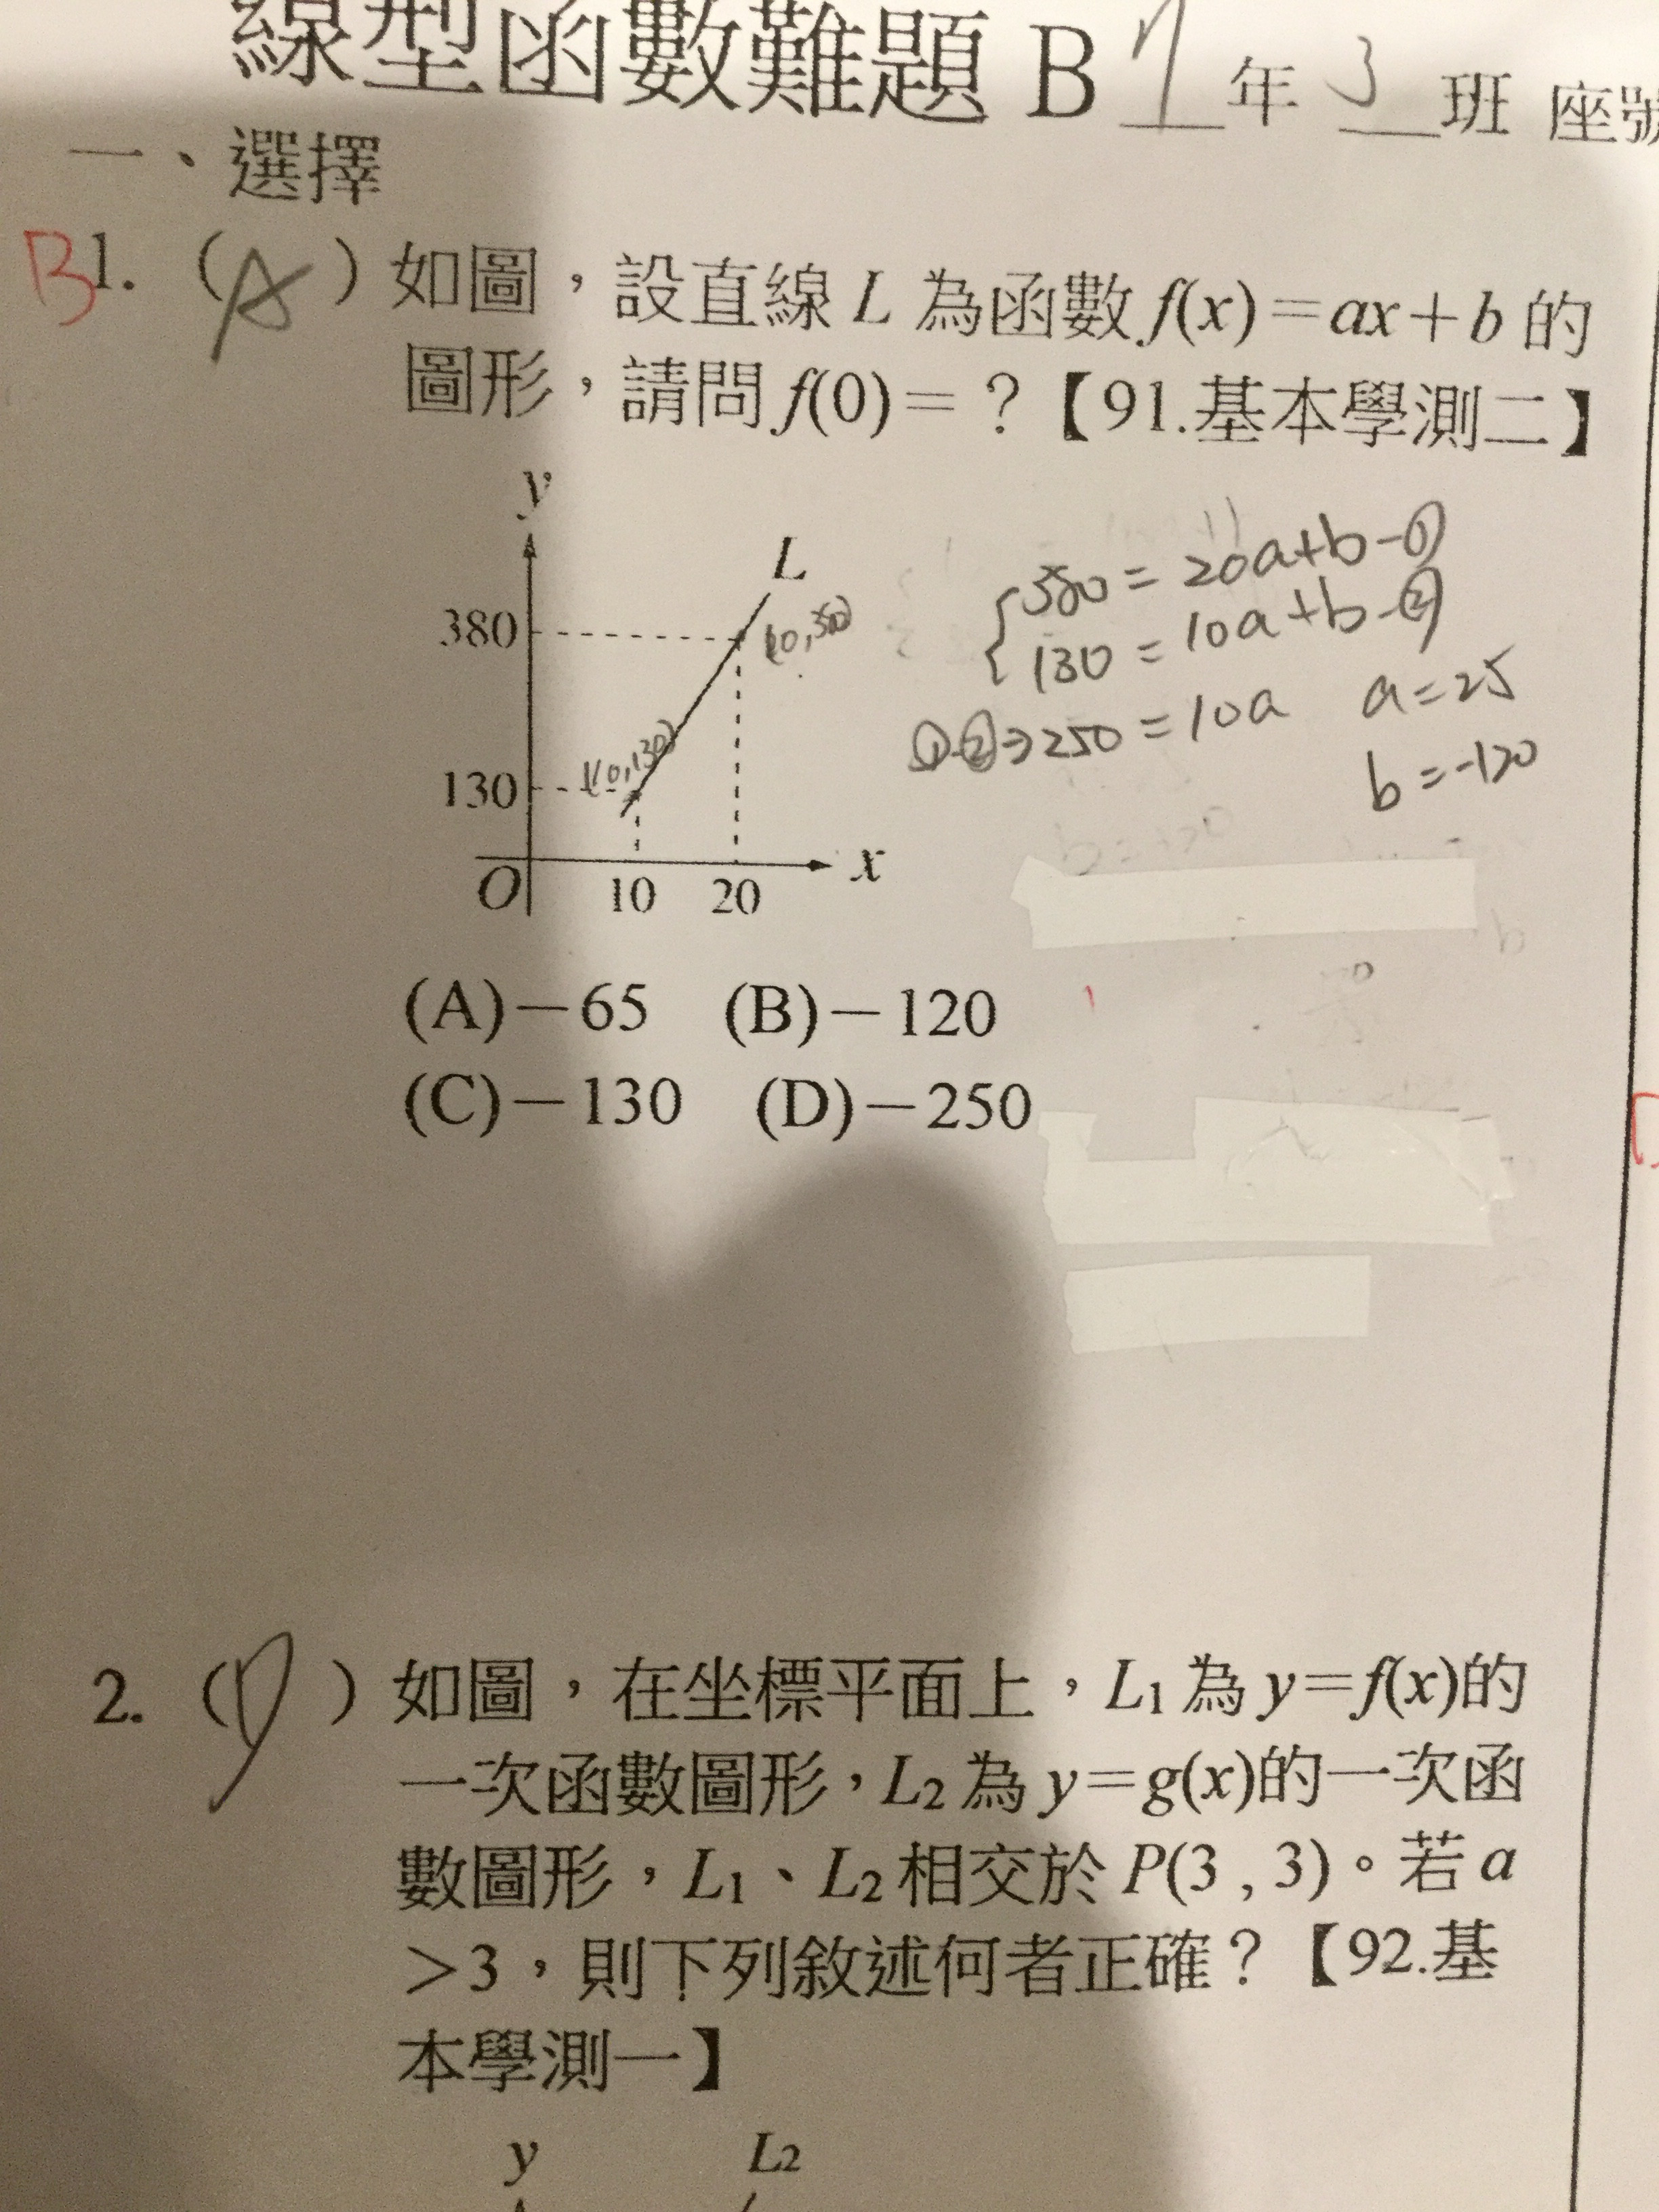 線型函數難題 B 7 年 3 班 座號
一、選擇
B1. (A) 如圖，設直線 L 為函數 f(x)＝ax＋b 的
圖形，請問 f(0)＝？【91.基本學測二】
y
L
380
130
(10,130)
O
10
20
x
380 = 20a+b-①
130 = 10a+b-②
①-②⇒250 = 10a a=25
b=-120
(A)－65 (B)－120
(C)－130 (D)－250
2. (D) 如圖，在坐標平面上，L1 為 y＝f(x)的
一次函數圖形，L2 為 y＝g(x)的一次函
數圖形，L1、L2 相交於 P(3 , 3)。若 a
＞3，則下列敘述何者正確？【92.基
本學測一】
y
L2